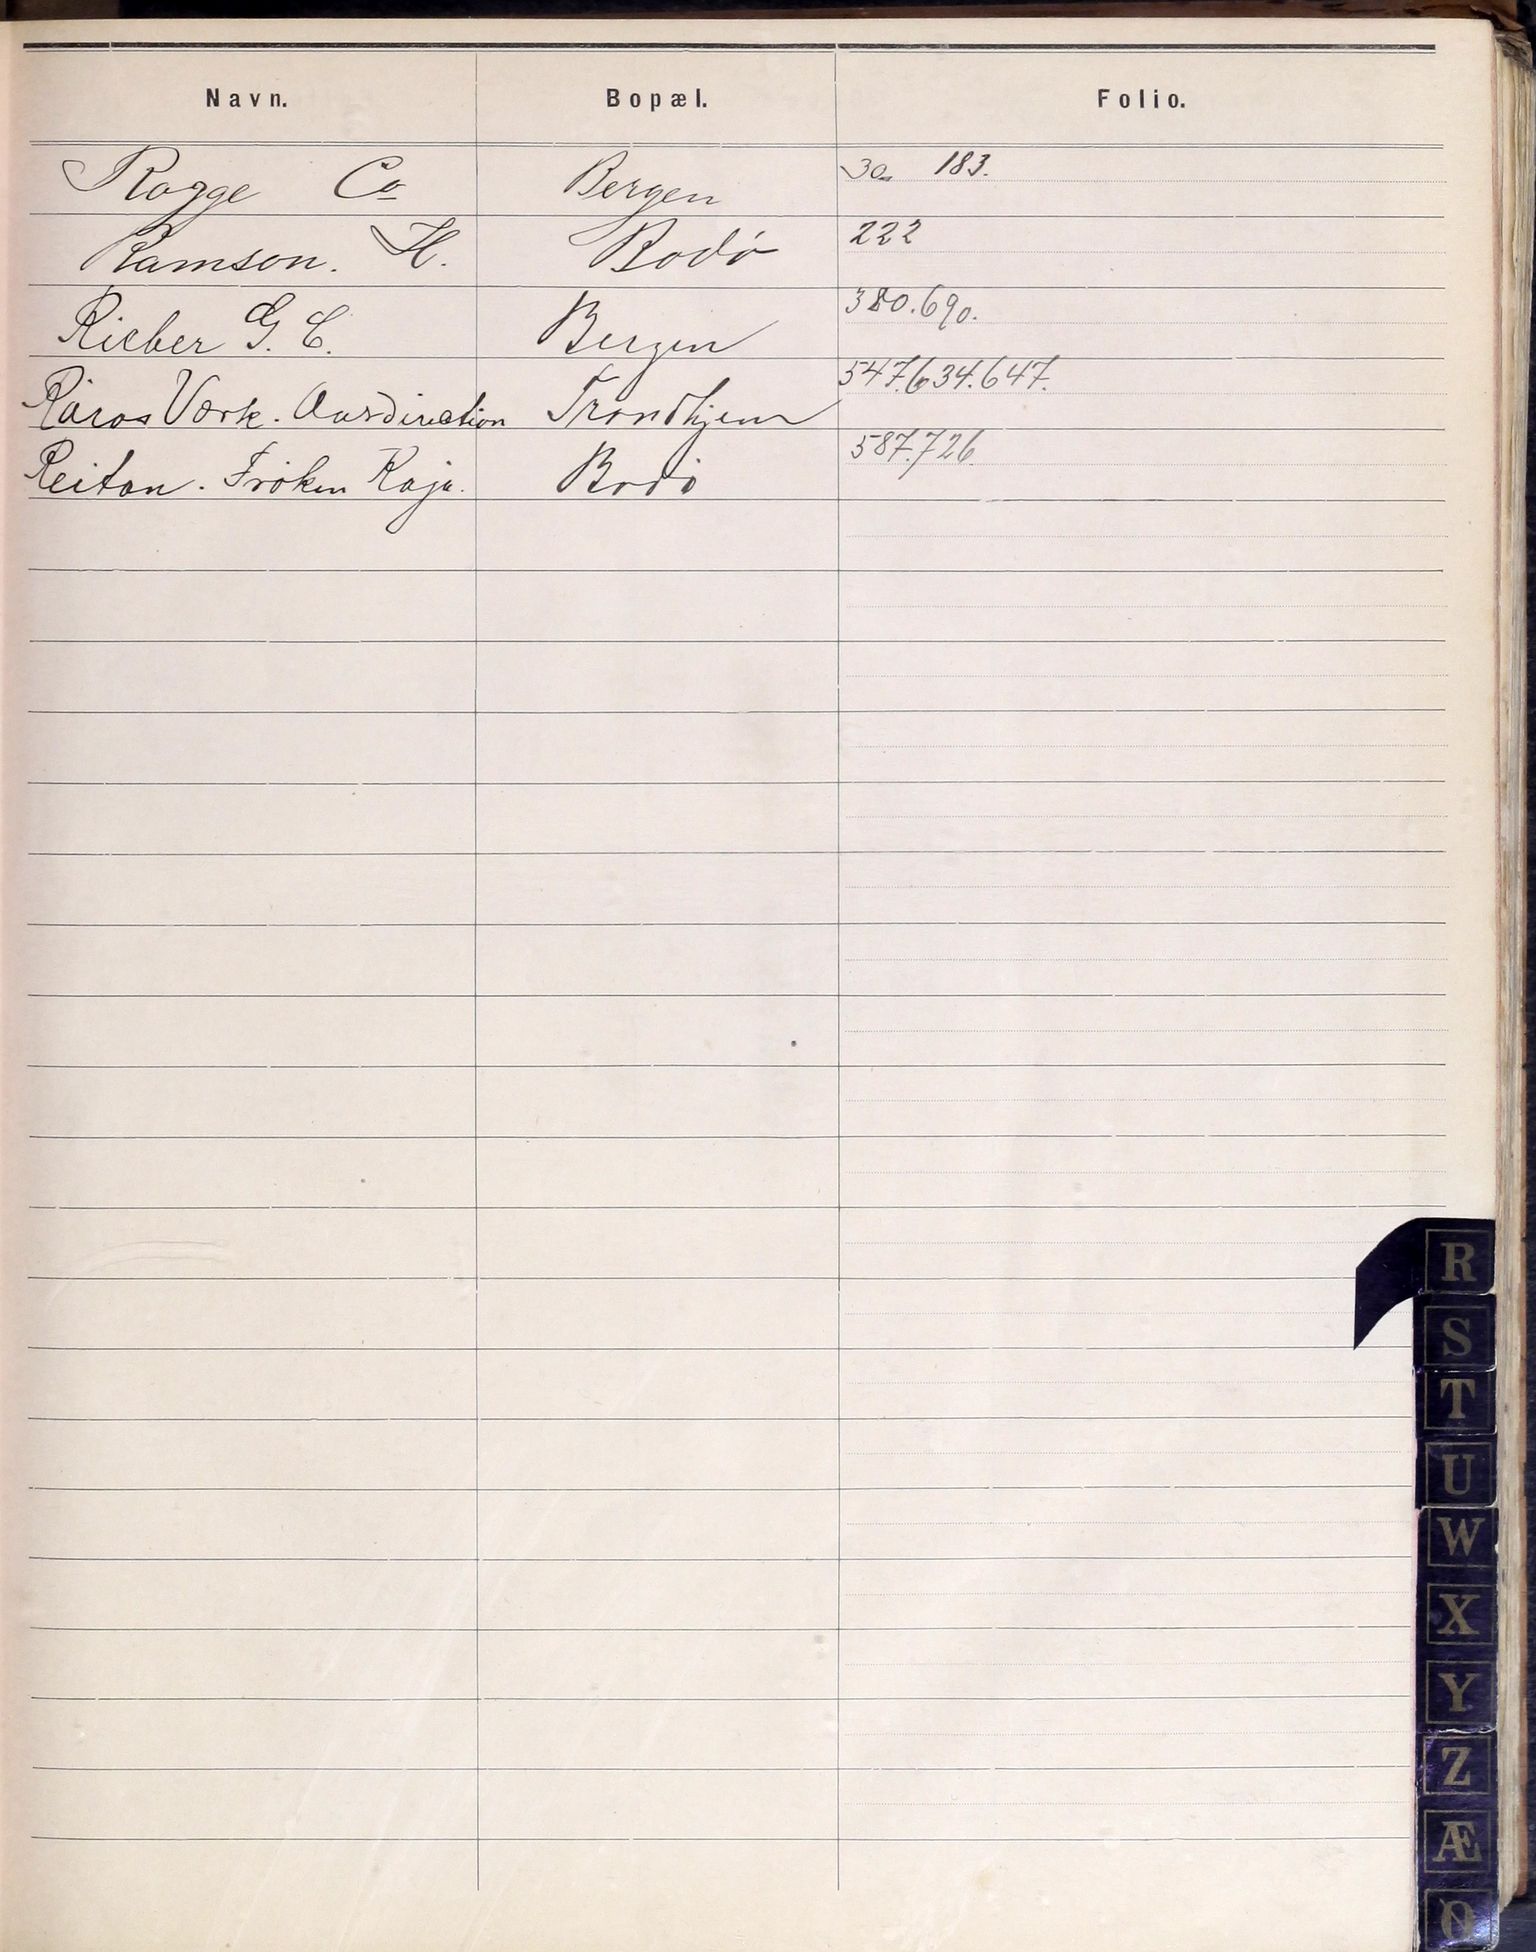 Navn. Bopæl. Folio.
Rogge Co Bergen 30 183.
Ramson. H. Bodö 222
Rieber G. C. Bergen 380.690.
Röros Værk. Trondhjem 547.634.647.
Reitan. Fröken Kaja. Bodö 587.726.
R
S
T
U
W
X
Y
Z
Æ
Ø